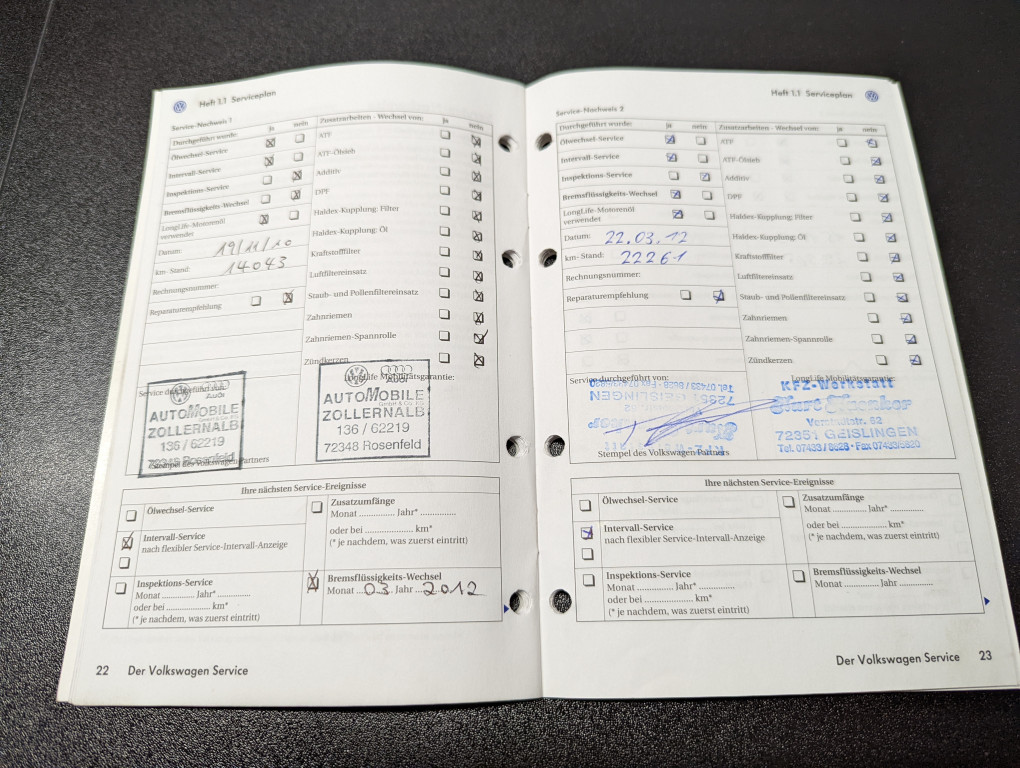 Heft 1.1 Serviceplan
Service-Nachweis 1
Durchgeführt wurde: ja nein
Ölwechsel-Service
Intervall-Service
Inspektions-Service
Bremsflüssigkeits-Wechsel
LongLife-Motorenöl
verwendet
Datum: 19/11/10
km-Stand: 14043
Rechnungsnummer:
Reparaturempfehlung
Zusatzarbeiten - Wechsel von: ja nein
ATF
ATF-Ölsieb
Additiv
DPF
Haldex-Kupplung: Filter
Haldex-Kupplung: Öl
Kraftstofffilter
Luftfiltereinsatz
Staub- und Pollenfiltereinsatz
Zahnriemen
Zahnriemen-Spannrolle
Zündkerzen
Service durchgeführt von:
Audi
AUTOMOBILE
ZOLLERNALB
136 / 62219
72348 Rosenfeld
Stempel des Volkswagen Partners
LongLife Mobilitätsgarantie:
Audi
AUTOMOBILE
GmbH & Co. KG
ZOLLERNALB
136 / 62219
72348 Rosenfeld
Ihre nächsten Service-Ereignisse
Ölwechsel-Service
Intervall-Service
nach flexibler Service-Intervall-Anzeige
Inspektions-Service
Monat .............. Jahr* ..............
oder bei .............. km*
(* je nachdem, was zuerst eintritt)
Zusatzumfänge
Monat .............. Jahr* ..............
oder bei .............. km*
(* je nachdem, was zuerst eintritt)
Bremsflüssigkeits-Wechsel
Monat 03 Jahr 2012
22 Der Volkswagen Service
Heft 1.1 Serviceplan
Service-Nachweis 2
Durchgeführt wurde: ja nein
Ölwechsel-Service
Intervall-Service
Inspektions-Service
Bremsflüssigkeits-Wechsel
LongLife-Motorenöl
verwendet
Datum: 22.03.12
km-Stand: 22261
Rechnungsnummer:
Reparaturempfehlung
Zusatzarbeiten - Wechsel von: ja nein
ATF
ATF-Ölsieb
Additiv
DPF
Haldex-Kupplung: Filter
Haldex-Kupplung: Öl
Kraftstofffilter
Luftfiltereinsatz
Staub- und Pollenfiltereinsatz
Zahnriemen
Zahnriemen-Spannrolle
Zündkerzen
Service durchgeführt von:
72351 GEISLINGEN
Stempel des Volkswagen Partners
LongLife Mobilitätsgarantie:
KFZ-Werkstatt
72351 GEISLINGEN
Tel. 07433/8628 · Fax 07433/5820
Ihre nächsten Service-Ereignisse
Ölwechsel-Service
Intervall-Service
nach flexibler Service-Intervall-Anzeige
Inspektions-Service
Monat .............. Jahr* ..............
oder bei .............. km*
(* je nachdem, was zuerst eintritt)
Zusatzumfänge
Monat .............. Jahr* ..............
oder bei .............. km*
(* je nachdem, was zuerst eintritt)
Bremsflüssigkeits-Wechsel
Monat .............. Jahr ..............
Der Volkswagen Service 23